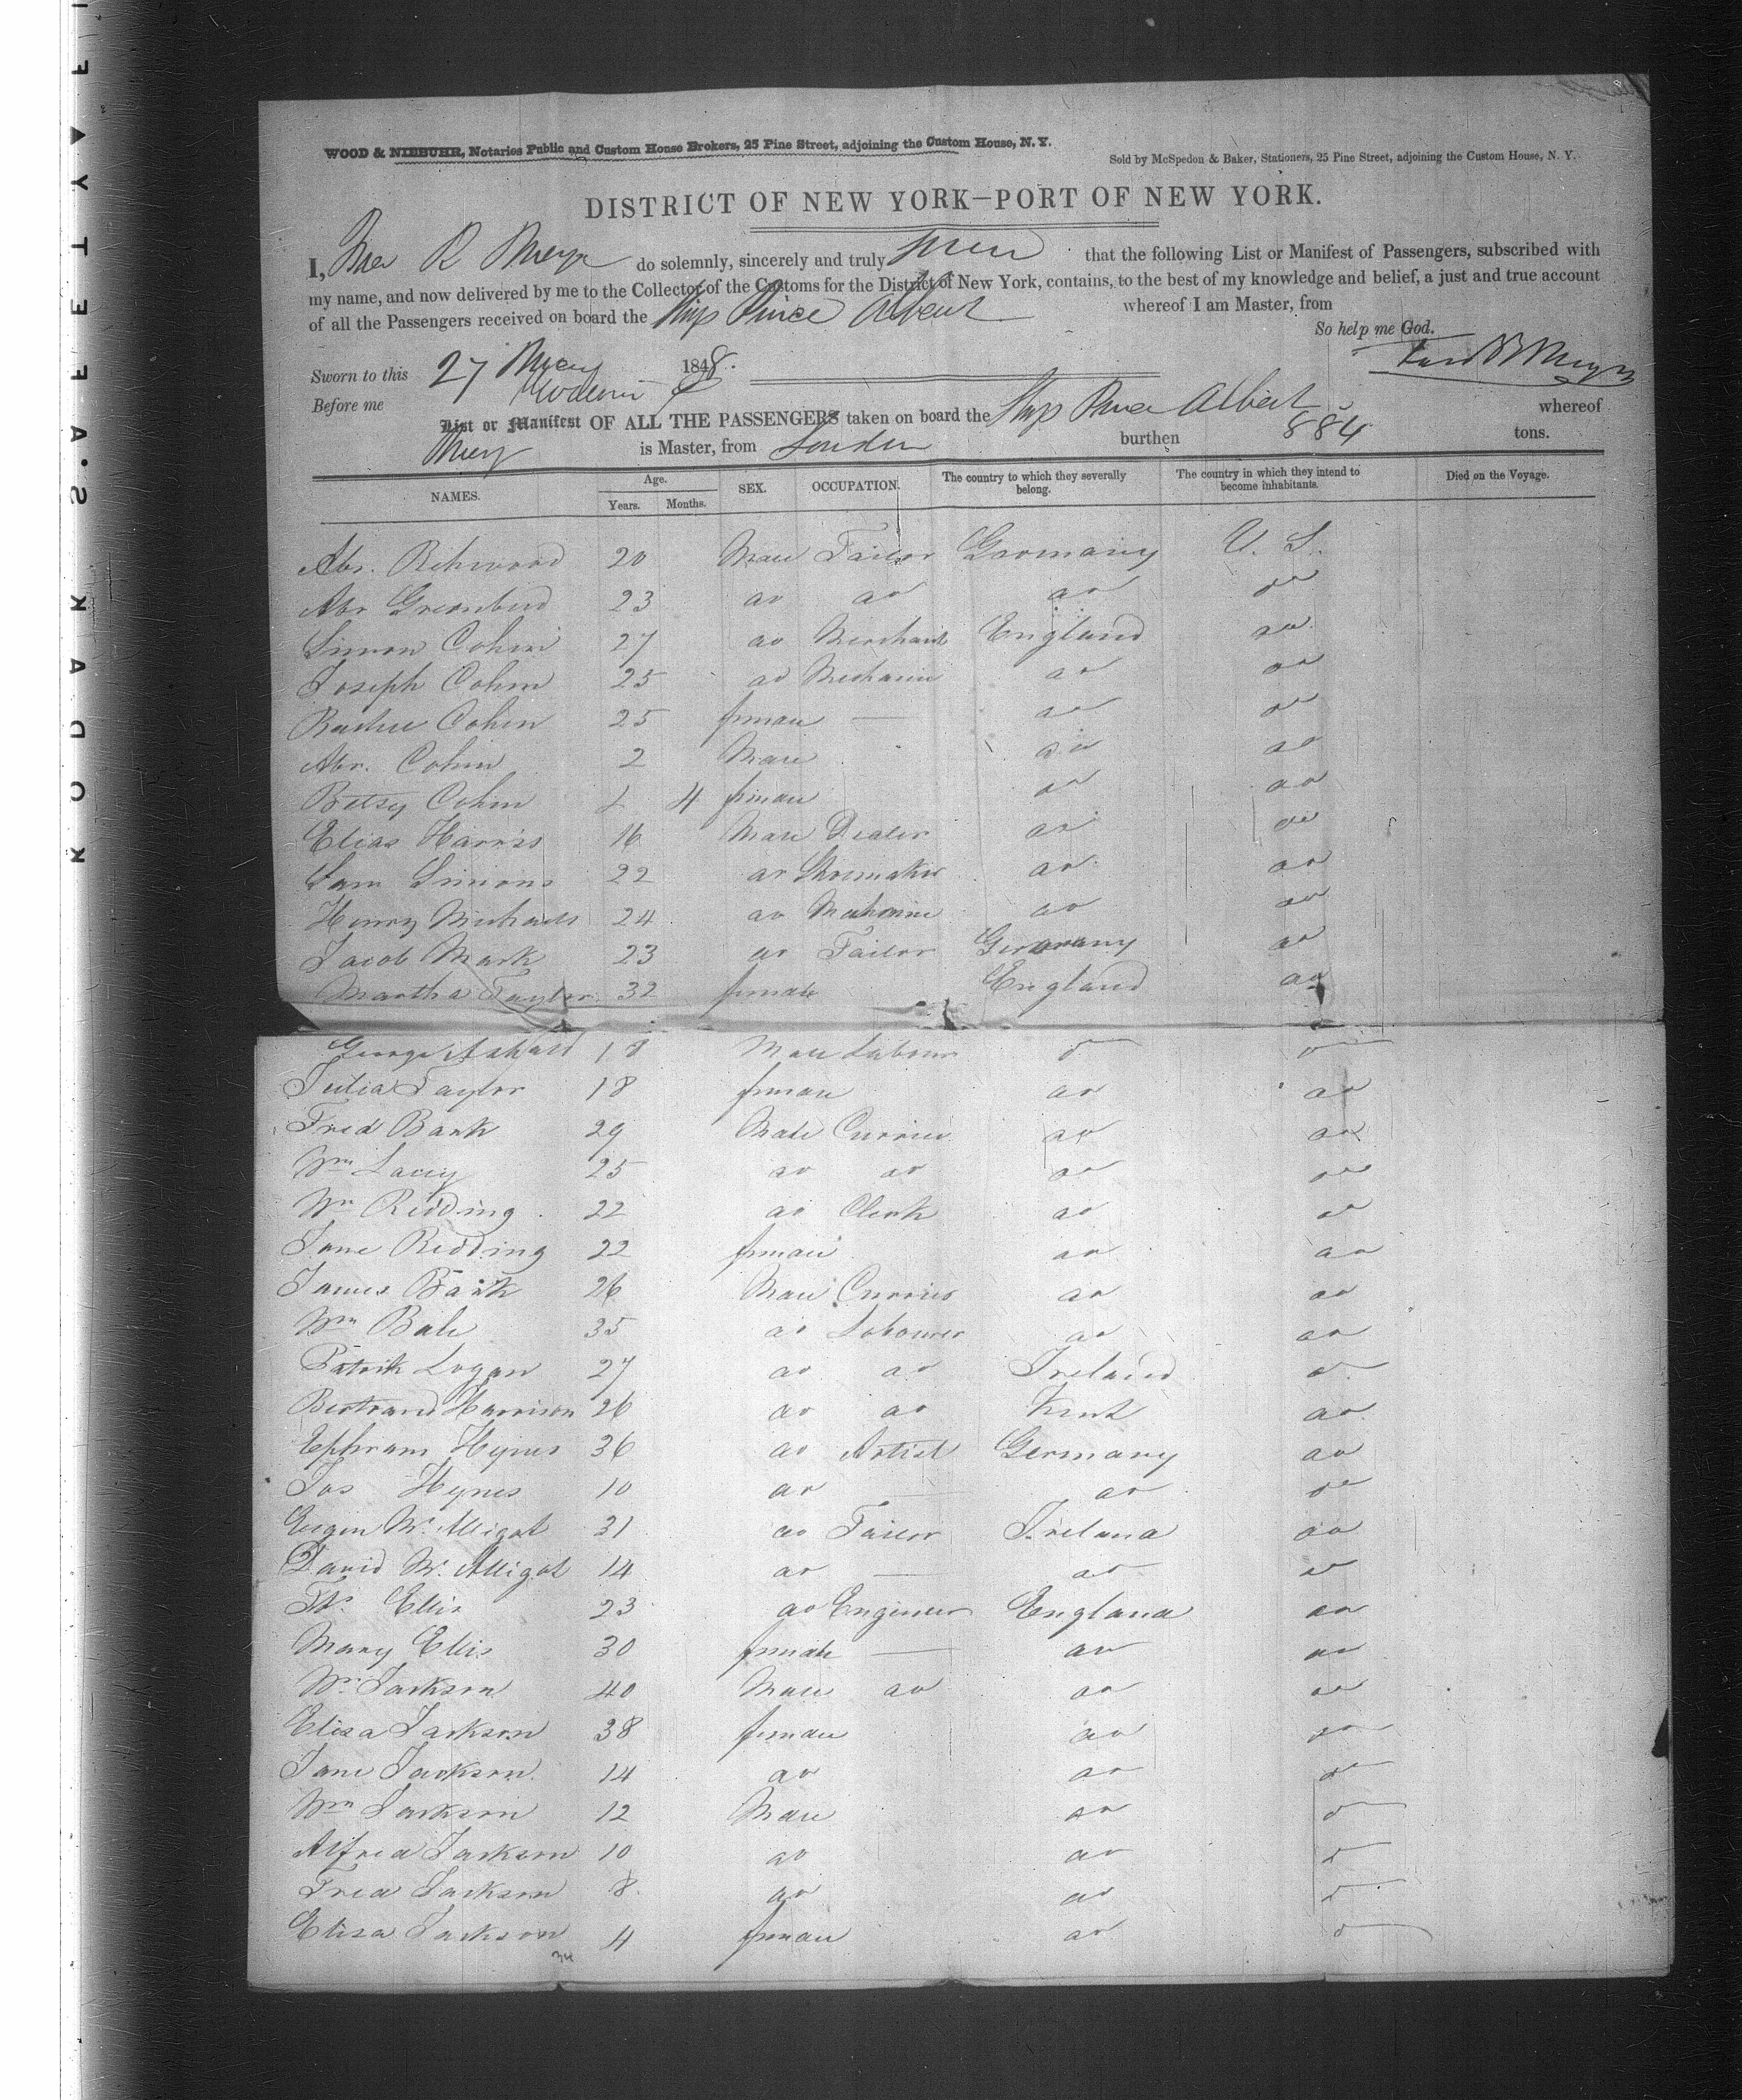 WOOD & NIEBUHR, Notaries Public and Custom House Brokers, 25 Pine Street, adjoining the Custom House, N. Y.
Sold by McSpedon & Baker, Stationers, 25 Pine Street, adjoining the Custom House, N. Y.
DISTRICT OF NEW YORK—PORT OF NEW YORK.
I, R Meyer do solemnly, sincerely and truly that the following List or Manifest of Passengers, subscribed with
my name, and now delivered by me to the Collector of the Customs for the District of New York, contains, to the best of my knowledge and belief, a just and true account
of all the Passengers received on board the Ship Prince Albert whereof I am Master, from
So help me God.
Sworn to this 27 May 1848.
Before me
List or Manifest OF ALL THE PASSENGERS taken on board the Ship Prince Albert whereof
Meyer is Master, from London burthen 884 tons.
NAMES. Age. Years. Months. SEX. OCCUPATION. The country to which they severally belong. The country in which they intend to become inhabitants. Died on the Voyage.
Abr. 20 Male Tailor Germany U. S.
Abr 23 do do do do
Simon Cohen 27 do Merchant England do
Joseph Cohen 25 do Mechanic do do
Cohen 25 female — do do
Abr. Cohen 2 Male do do
Betsy Cohen 4 female do do
Elias Harris 16 Male Dealer do do
Sam Simons 22 do Shoemaker do do
Henry Michaels 24 do Mechanic do do
Jacob Mark 23 do Tailor Germany do
Martha Taylor 32 female England do
George 18 Male Labour do do
Julia Taylor 18 female do do
Fred Bank 29 Male Currier do do
Wm Lacey 25 do do do do
Wm Redding 22 do Clerk do do
Jane Redding 22 female do do
James Bank 26 Male Currier do do
Wm Bale 35 do Labourer do do
Patrik Logan 27 do do Ireland do
Bertrand Harrison 26 do do Kent do
Ephram Hynes 36 do Artist Germany do
Jos Hynes 10 do — do do
Eugen 31 do Tailor Ireland do
David 14 do — do do
Ths. Ellis 23 do Engineer England do
Mary Ellis 30 female — do do
Wm Jackson 40 Male do do do
Eliza Jackson 38 female do do
Jane Jackson 14 do do do
Wm Jackson 12 Male do do
Alfred Jackson 10 do do do
Fred Jackson 8 do do do
Eliza Jackson 4 female do do
34